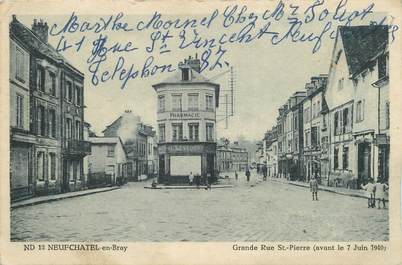 Marthe Moinel Chez Mr Soliot
41 Rue St Vincent Neuf
Telephone 87.
PHARMACIE
ND 13 NEUFCHATEL-en-Bray
Grande Rue St-Pierre (avant le 7 Juin 1940)